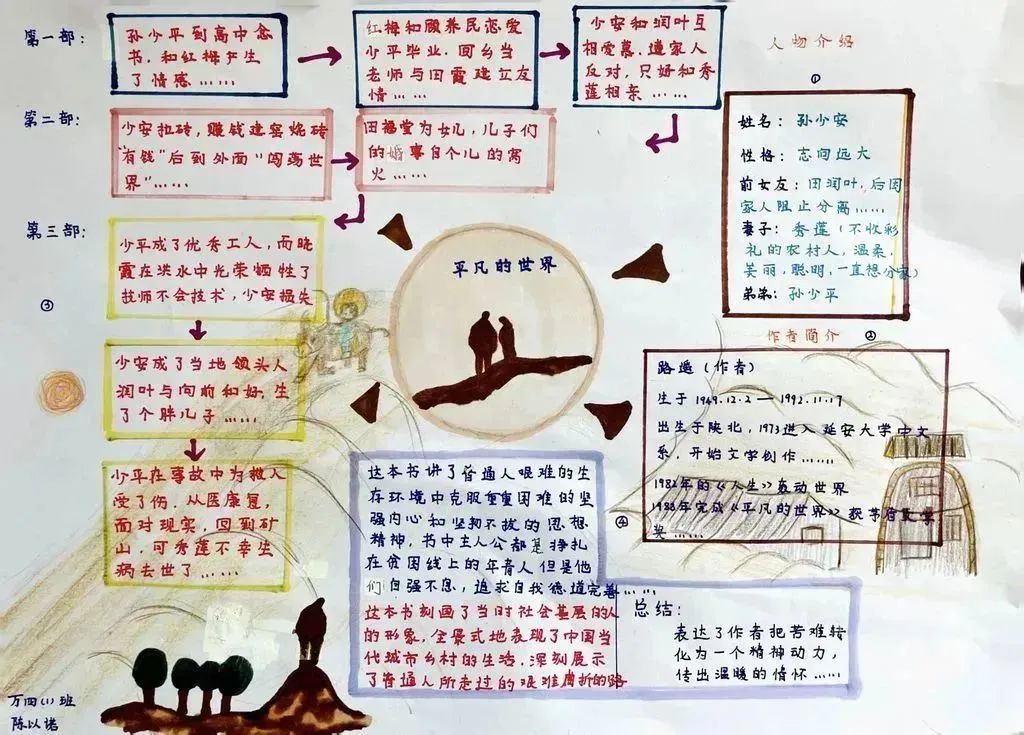 第一部：
孙少平到高中念
书，和红梅产生
了情感……
红梅和顾养民恋爱
少平毕业，回乡当
老师与田霞建立友
情……
少安和润叶互
相爱慕，遭家人
反对，只好和秀
莲相亲……
第二部：
少安拉砖，赚钱建窑烧砖
"有钱"后到外面"闯荡世
界"……
田福堂为女儿，儿子们
的婚事自个儿的窝
火……
第三部：
③
少平成了优秀工人，而晓
霞在洪水中光荣牺牲了
技师不会技术，少安损失
少安成了当地领头人
润叶与向前和好，生
了个胖儿子……
少平在事故中为救人
受了伤，从医康复，
面对现实，回到矿
山，可秀莲不幸生
病去世了……
平凡的世界
人物介绍
①
姓名：孙少安
性格：志向远大
前女友：田润叶，后因
家人阻止分离……
妻子：秀莲（不收彩
礼的农村人，温柔，
美丽，聪明，一直想分家）
弟弟：孙少平
作者简介 ②
路遥（作者）
生于1949.12.2—1992.11.17
出生于陕北，1973进入延安大学中文
系，开始文学创作……
1982年的《人生》轰动世界
1988年完成《平凡的世界》获茅盾文学
奖……
④
这本书讲了普通人艰难的生
存环境中克服重重困难的坚
强内心和坚韧不拔的思想
精神，书中主人公都是挣扎
在贫困线上的年青人但是他
们自强不息，追求自我德道完善……
这本书刻画了当时社会基层的人
的形象，全景式地表现了中国当
代城市乡村的生活，深刻展示
了普通人所走过的艰难曲折的路
总结：
表达了作者把苦难转
化为一个精神动力，
传出温暖的情怀……
万四（1）班
陈以诺